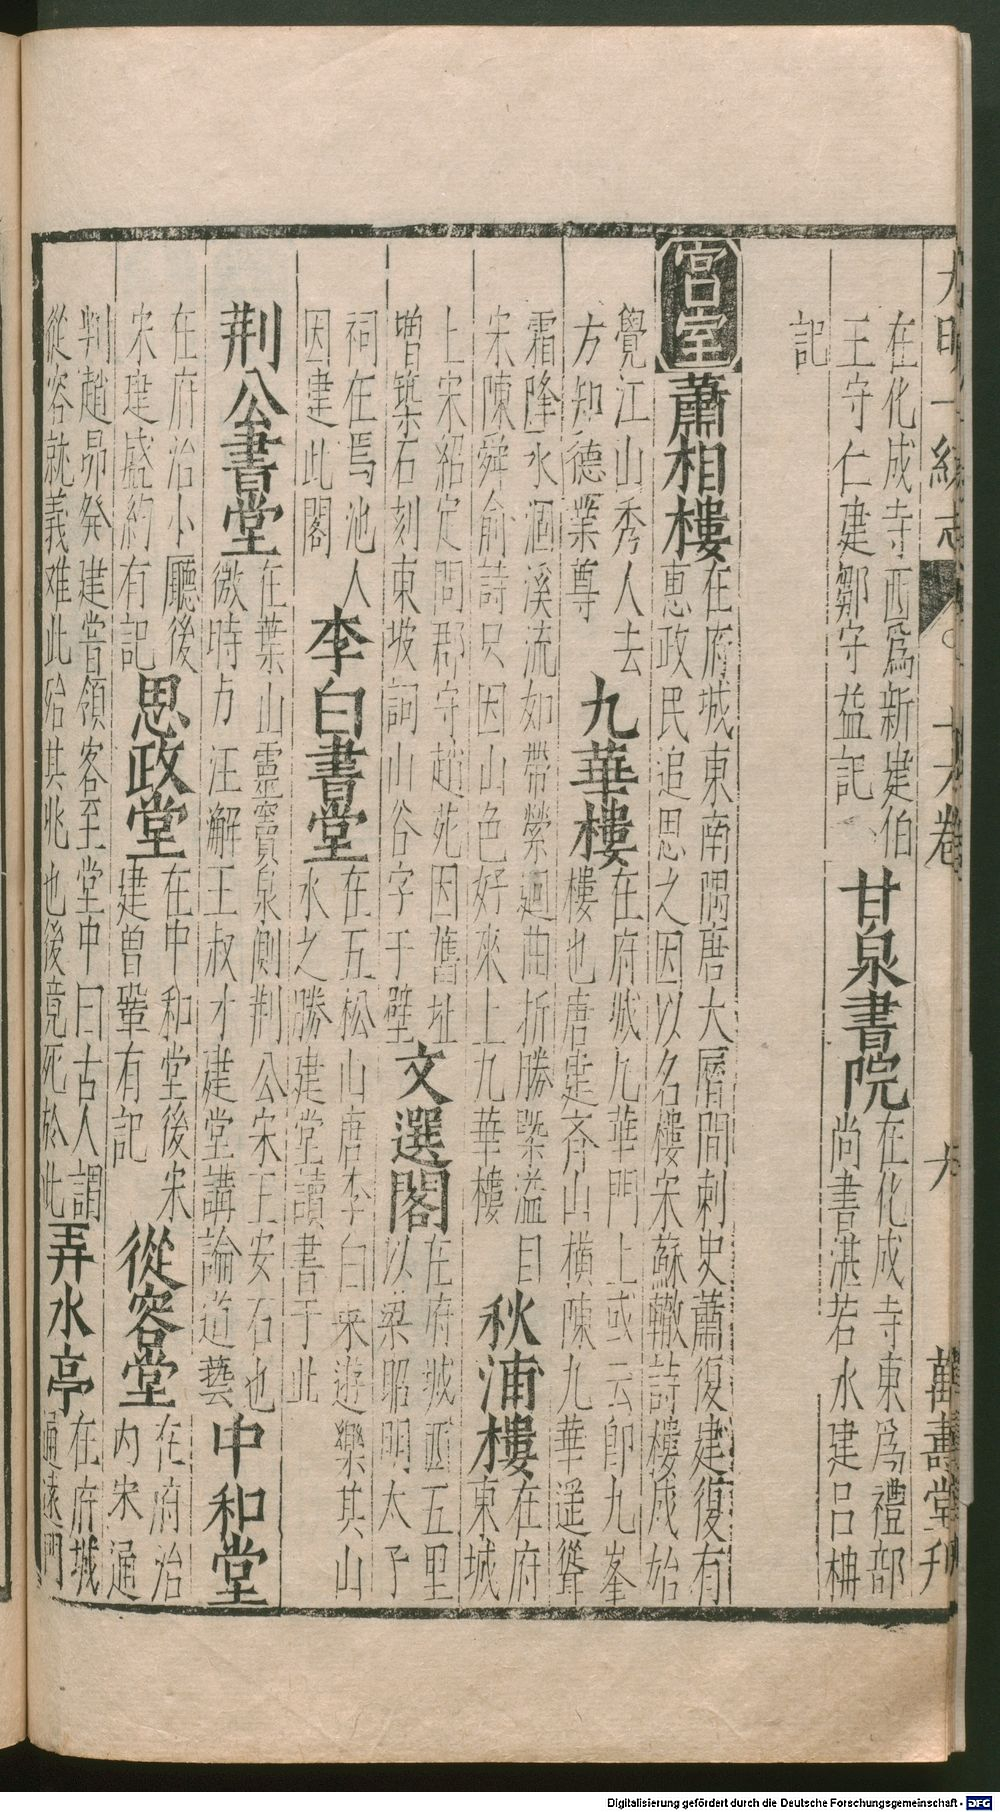 大明一統志 十六卷 九 萬壽堂刊
在化成寺西爲新建伯
王守仁建鄒守益記
甘泉書院
在化成寺東爲禮部
尚書湛若水建呂柟
記
宮室
蕭相樓
在府城東南隅唐大曆間刺史蕭復建復有
惠政民追思之因以名樓宋蘇轍詩樓成始
覺江山秀人去
方知德業尊
九華樓
在府城九華門上或云卽九峯
樓也唐建齊山橫陳九華遥聳
霜降水涸溪流如帶縈迴曲折勝槩溢目
宋陳舜俞詩只因山色好來上九華樓
秋浦樓
在府
東城
上宋紹定間郡守趙范因舊址
增築石刻東坡詞山谷字于壁
文選閣
在府城西五里
以梁昭明太子
祠在焉池人
因建此閣
李白書堂
在五松山唐李白來遊樂其山
水之勝建堂讀書于此
荆公書堂
在葉山靈竇泉側荆公宋王安石也
微時与汪澥王叔才建堂講論道藝
中和堂
在府治
內宋通
在府治小廳後
宋建盛約有記
思政堂
在中和堂後宋
建曾鞏有記
從容堂
判趙昴發建嘗領客至堂中曰古人謂
從容就義难此殆其兆也後竟死於此
弄水亭
在府城
通遠門